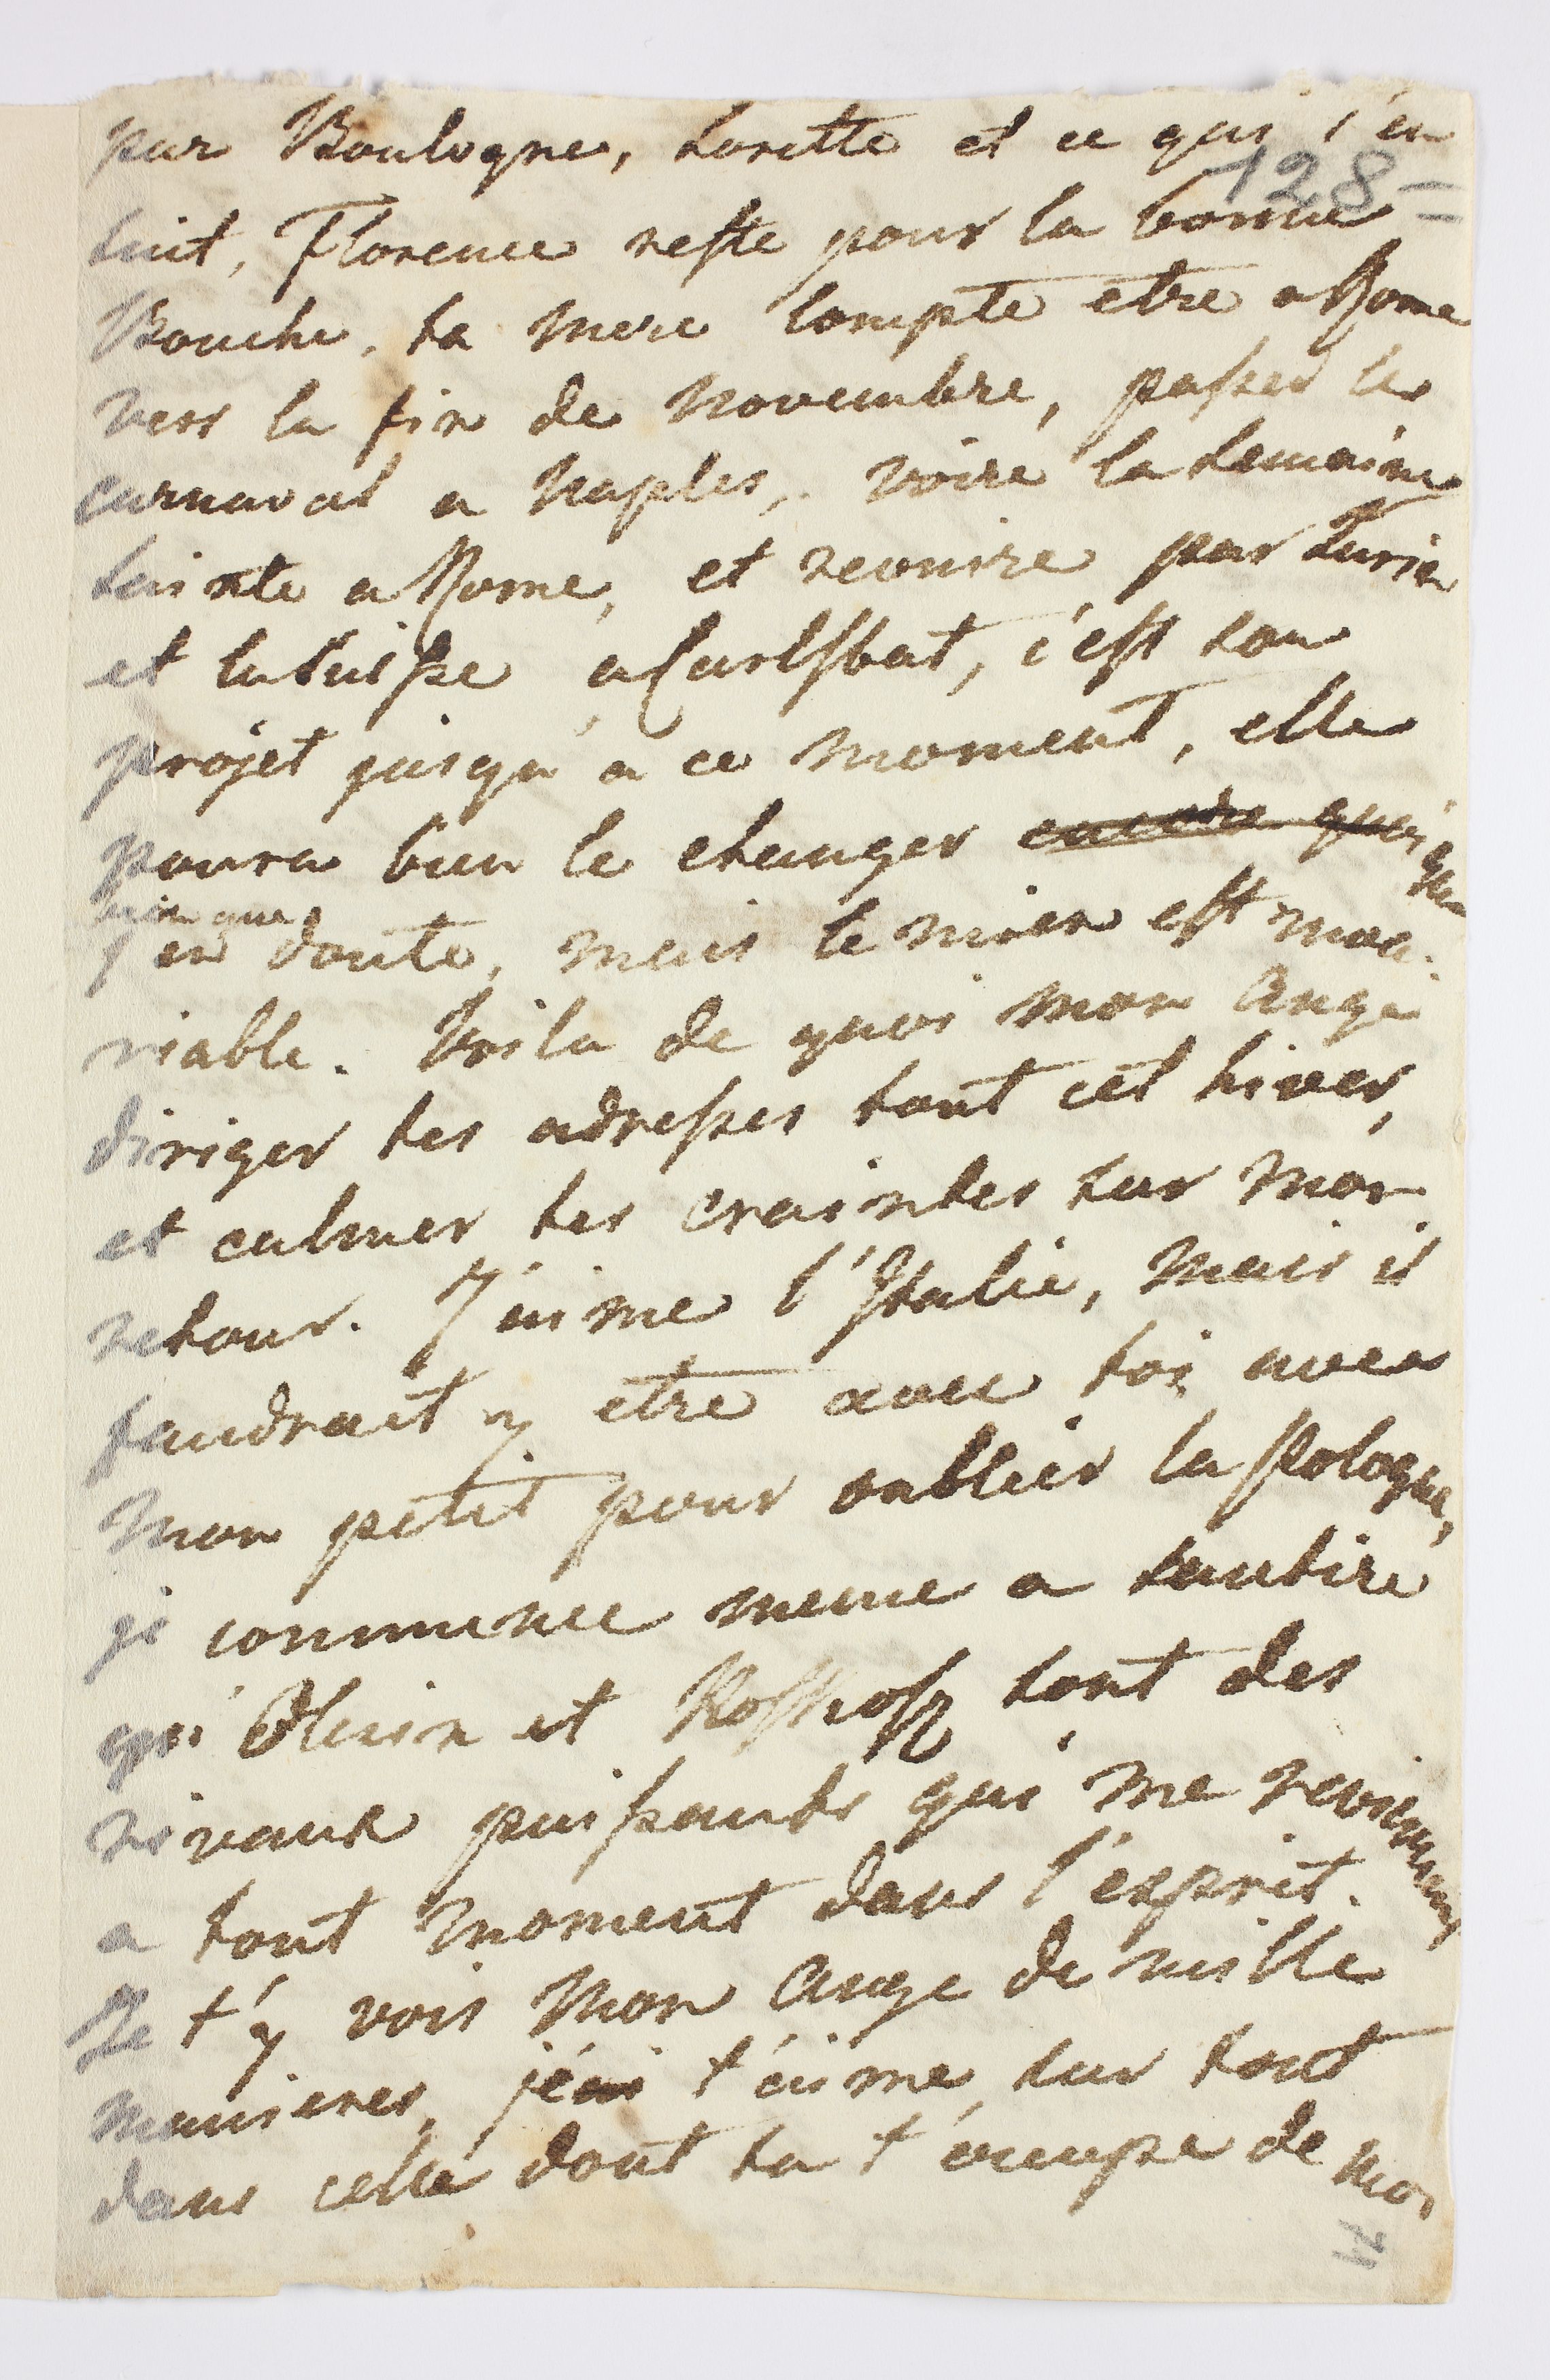 par Boulogne, Lorette et ce qui s'en
128
suit, Florence reste pour la bonne
Bouche, ta mere compte etre a Rome
vers la fin de Novembre, passer le
carnaval a Naples, voire la semaine
sainte a Rome, et revenire par Turin
et la Suisse a Carlsbat, c'est son
projet jusqu'a ce moment, elle
poura bien le changer encore quoique
bien que
j'en doute, mais le mien est inva:
riable. Voila de quoi mon Ange
diriger tes adresses tout cet hiver,
et calmer tes craintes sur mon
retour. J'aime l'Italie, mais il
faudrait y etre avec toi avec
mon petit pour oublier la Pologne,
je commence meme a sentire
qu' Olesin et sont des
rivaux puissants qui me reviennent
a tout moment dans l'esprit.
Je t'y vois mon Ange de mille
manieres, t'aime sur tout
dans celle dont tu t'occupe de moi